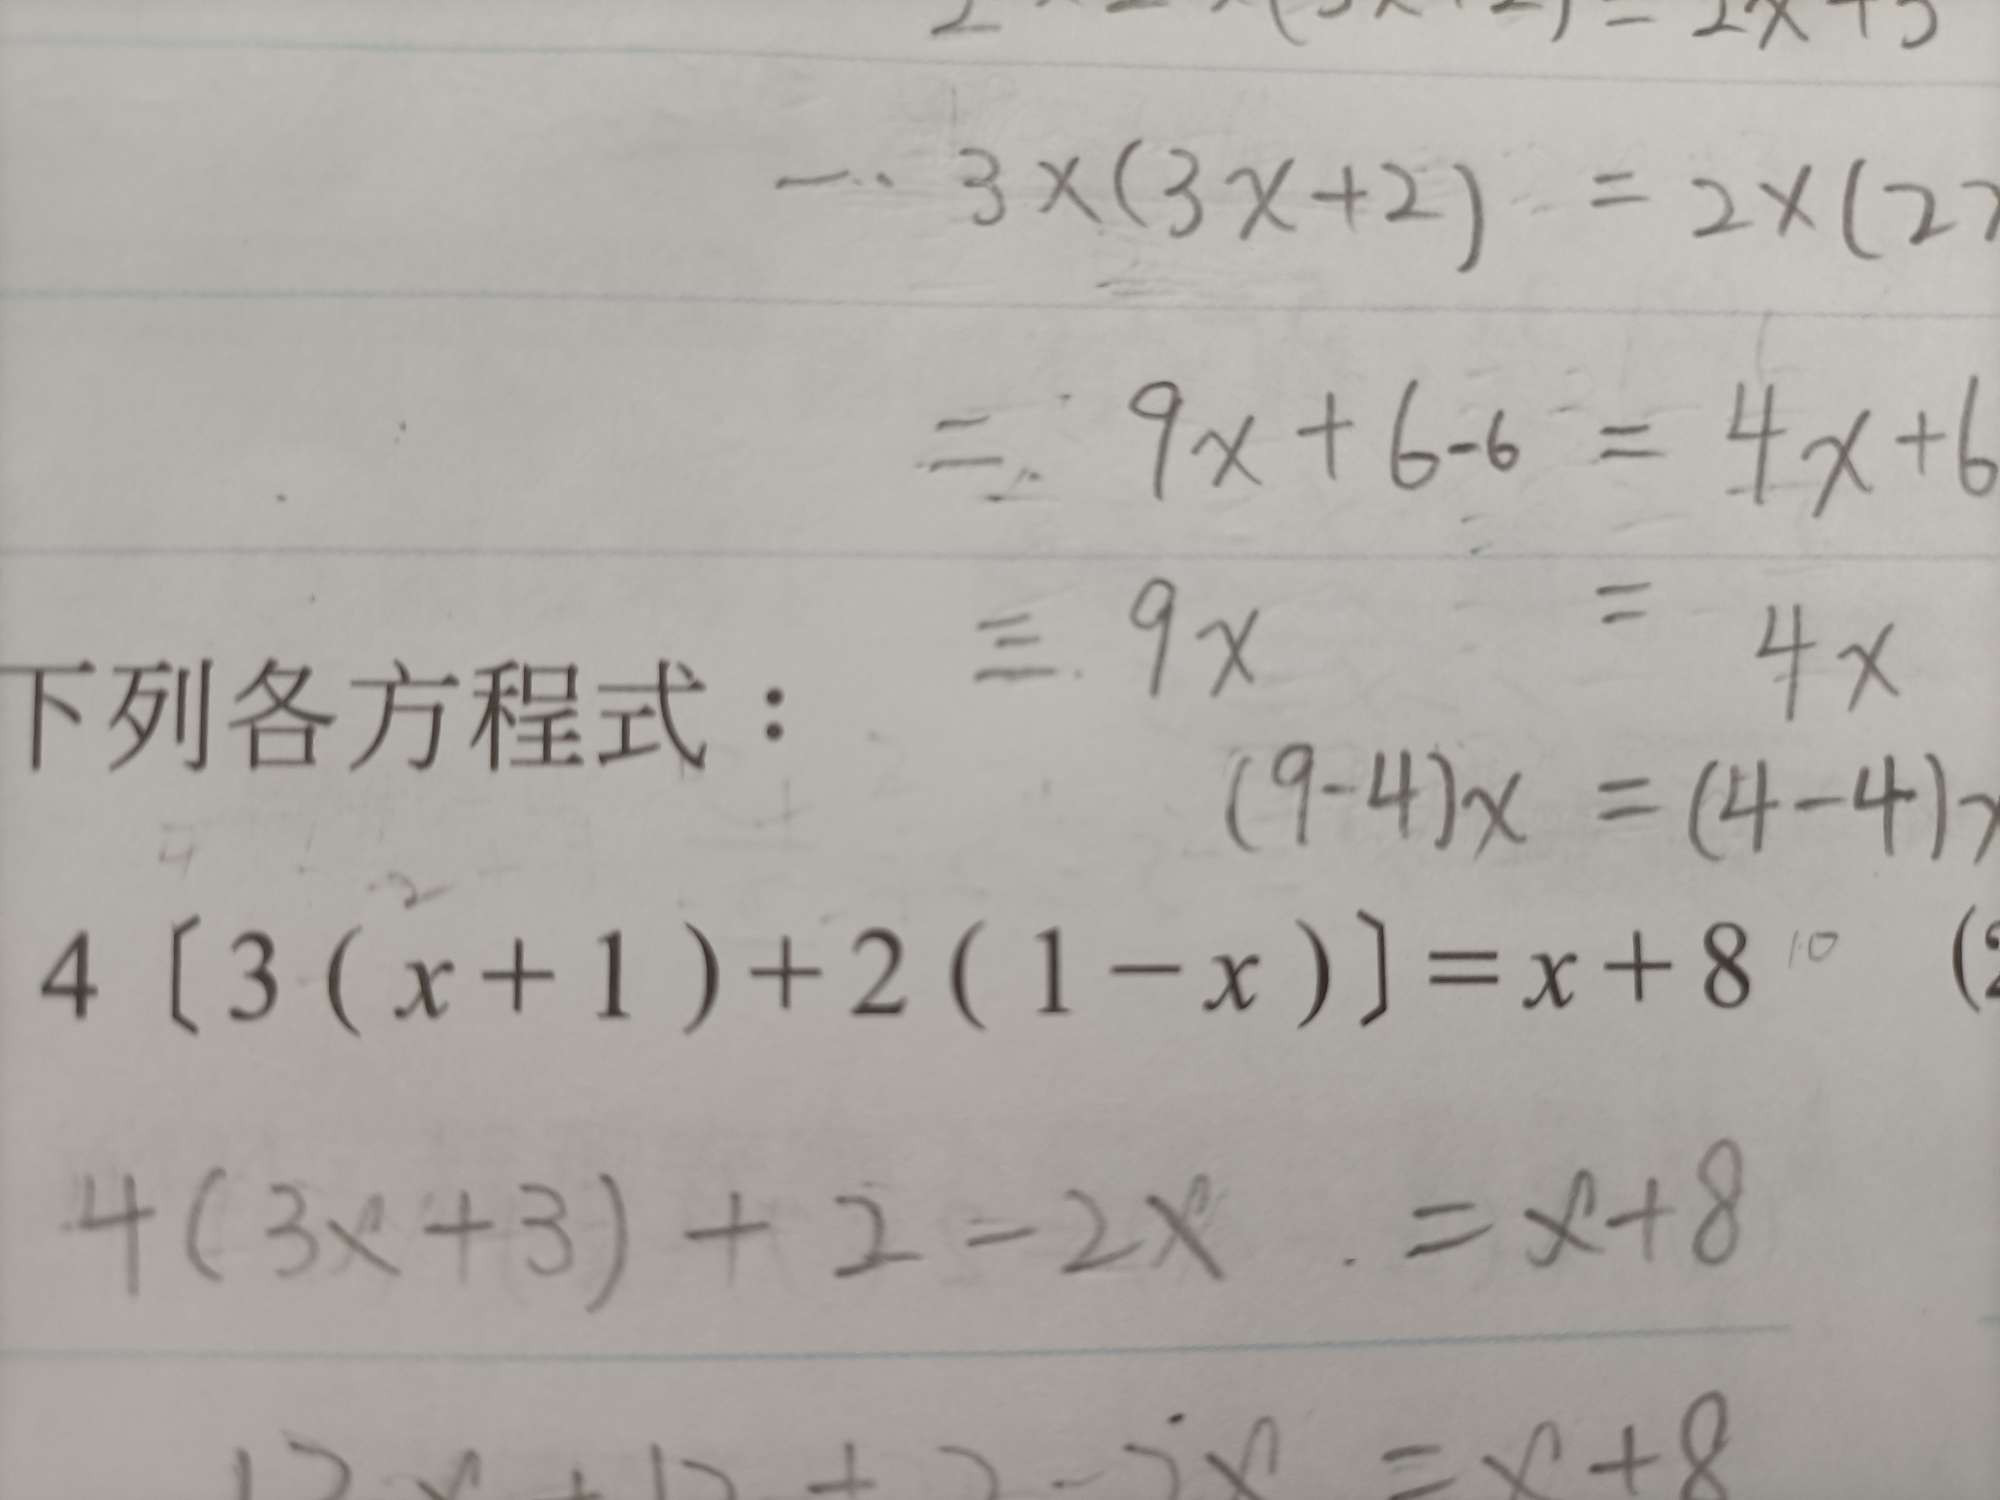 3×(3x+2) = 2×(2
= 9x+6-6 = 4x+6
= 9x = 4x
下列各方程式：
(9-4)x = (4-4)x
4〔3(x+1)+2(1-x)〕=x+8 10 (2
4(3x+3)+2-2x = x+8
12x+12+2-2x = x+8